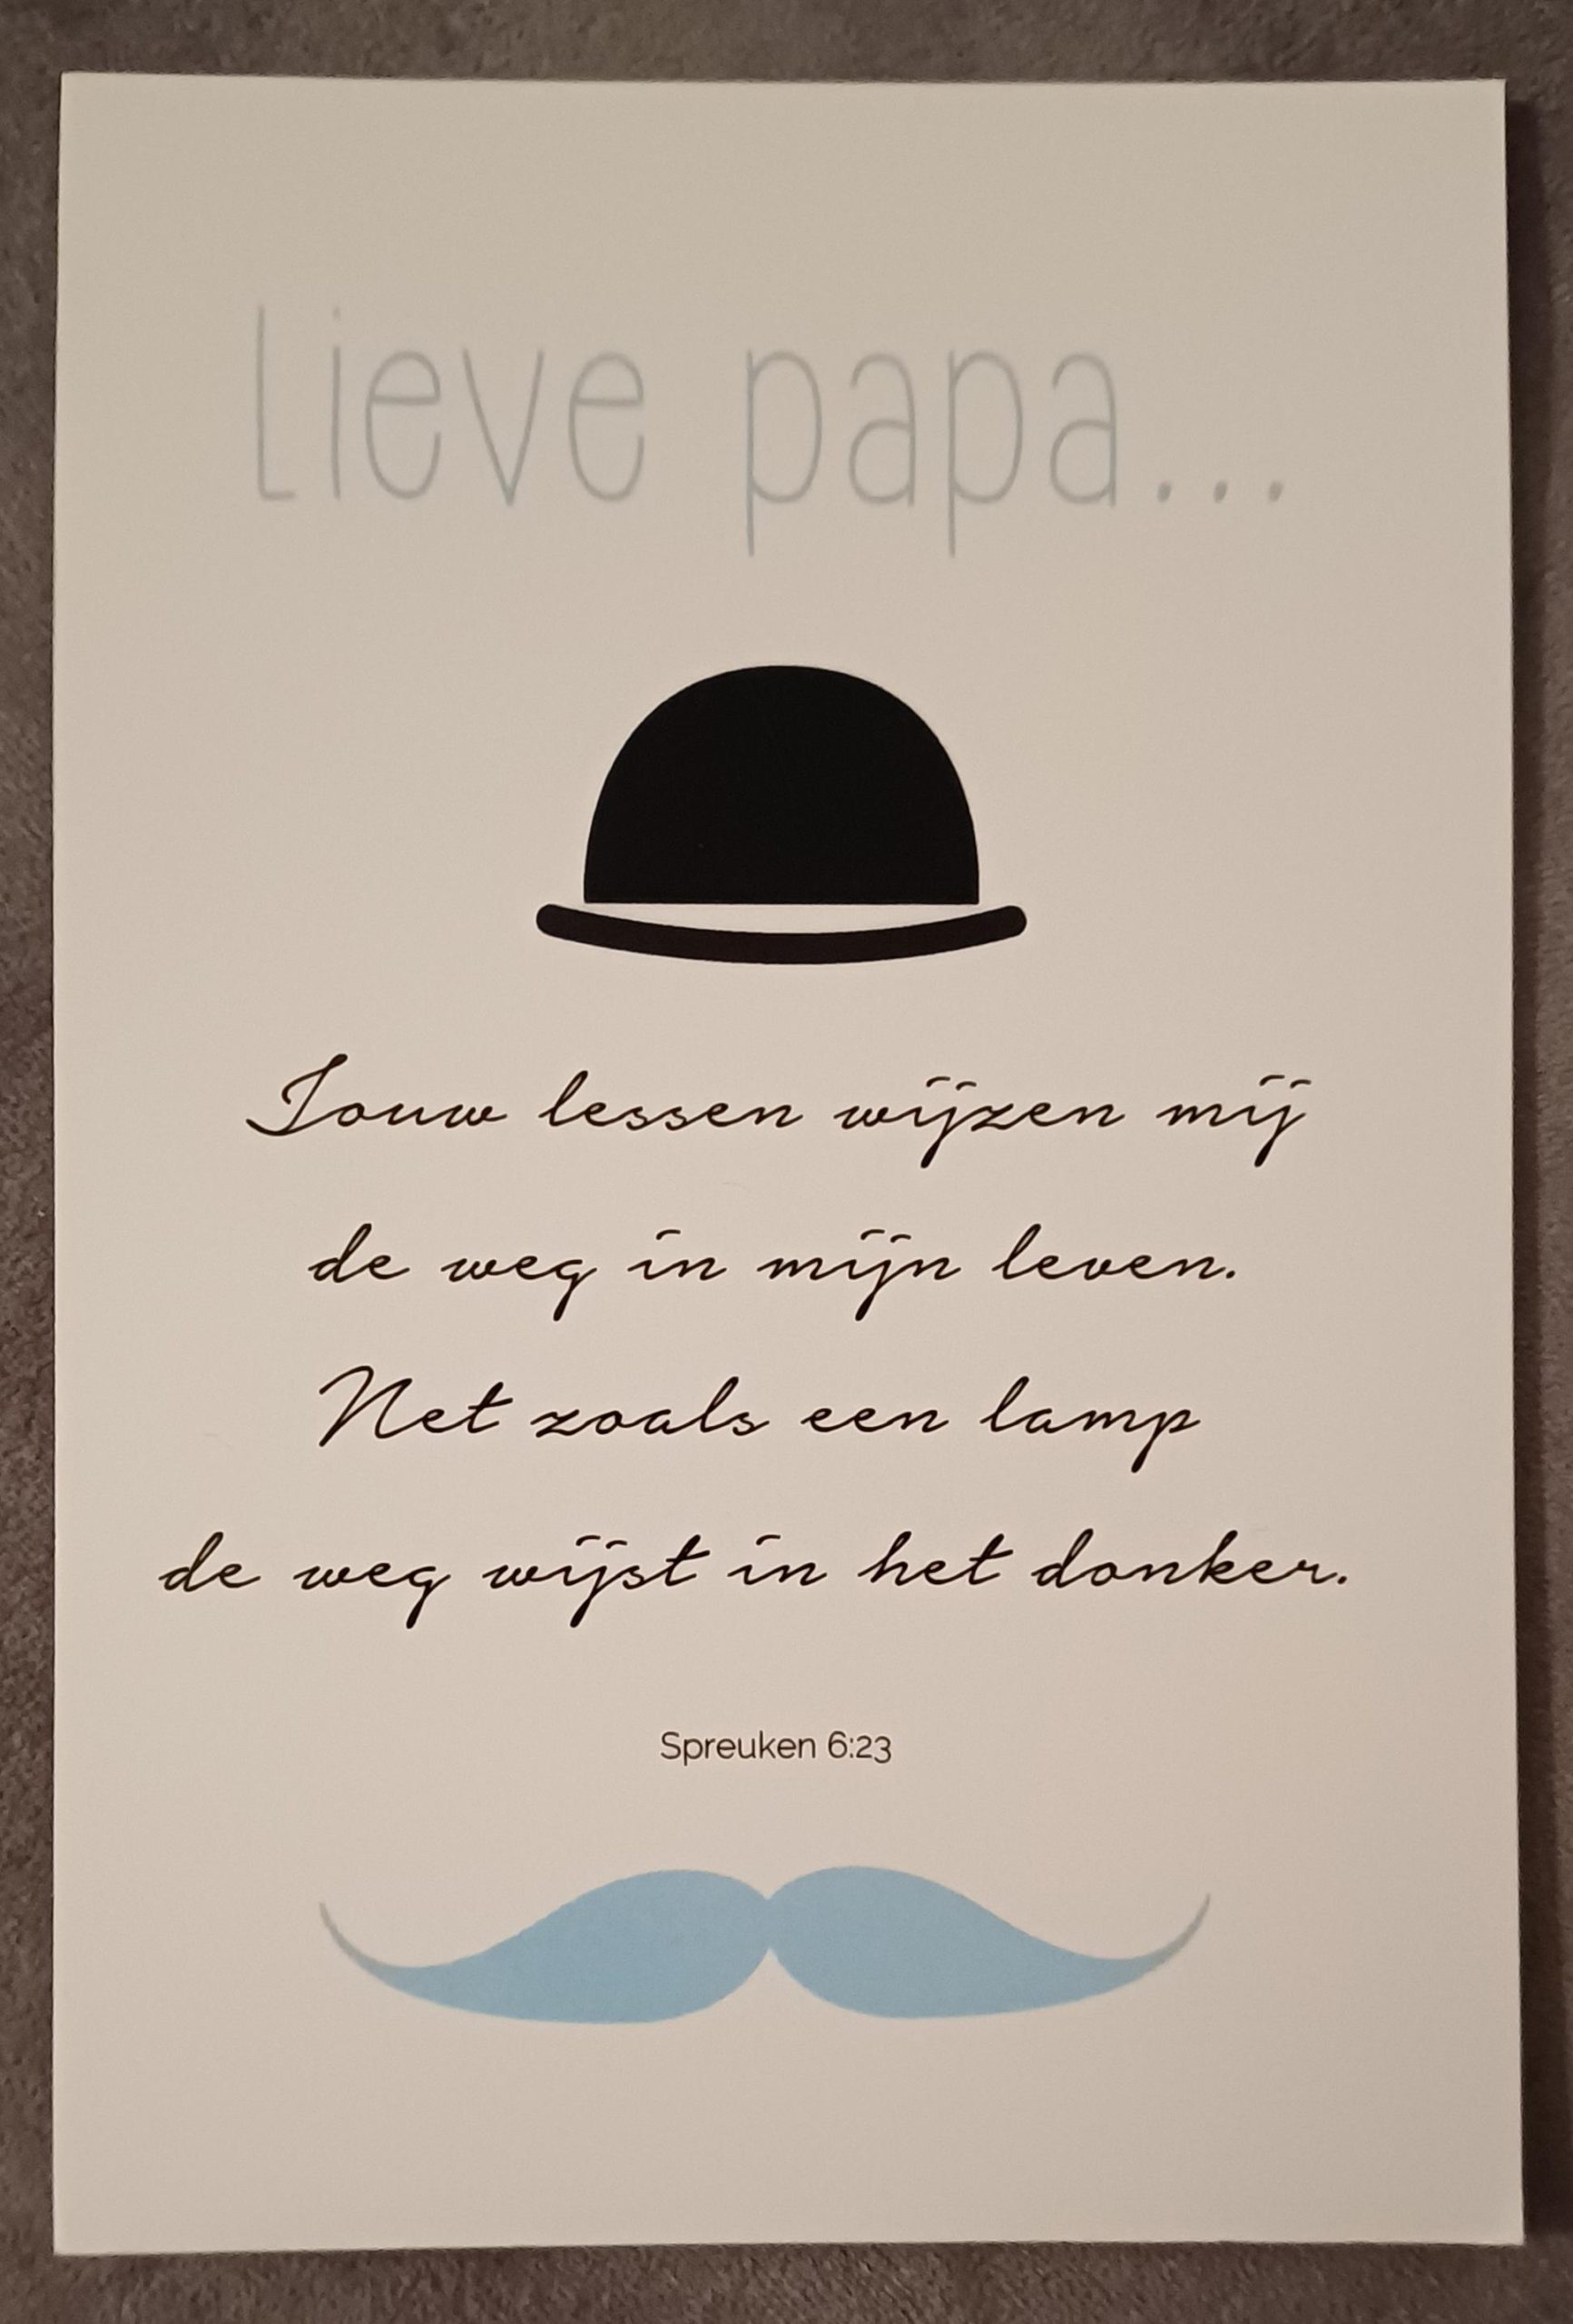 Lieve papa...
Jouw lessen wijzen mij
de weg in mijn leven.
Net zoals een lamp
de weg wijst in het donker.
Spreuken 6:23